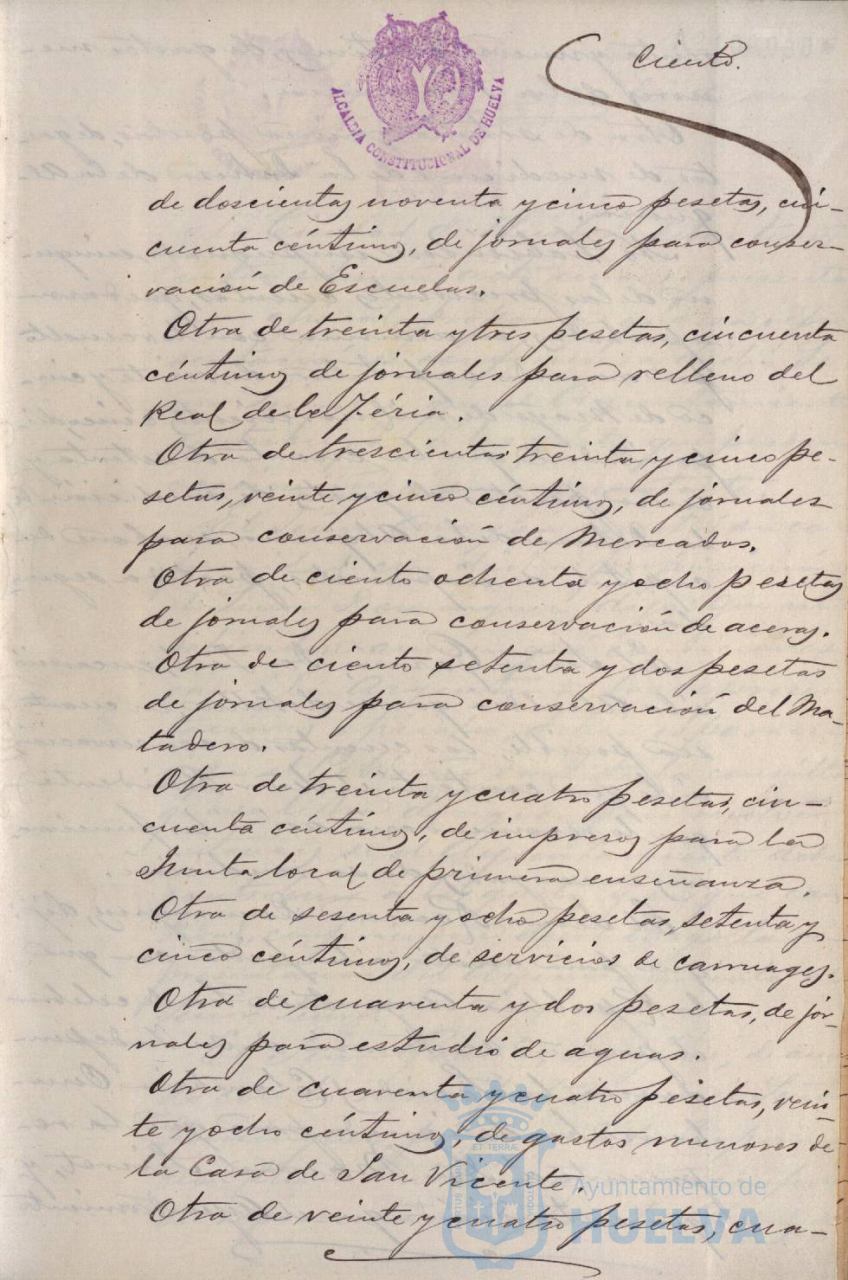 Ciento.
ALCALDIA CONSTITUCIONAL DE HUELVA
de doscientas noventa y cinco pesetas, cin-
cuenta céntimos, de jornales para conser-
vación de Escuelas.
Otra de treinta y tres pesetas, cincuenta
céntimos de jornales para relleno del
Real de la Féria.
Otra de trescientas treinta y cinco pe-
setas, veinte y cinco céntimos, de jornales
para conservación de Mercados.
Otra de ciento ochenta y ocho pesetas
de jornales para conservación de aceras.
Otra de ciento setenta y dos pesetas
de jornales para conservación del Ma-
tadero.
Otra de treinta y cuatro pesetas, cin-
cuenta céntimos, de impresos para la
Junta local de primera enseñanza.
Otra de sesenta y ocho pesetas, setenta y
cinco céntimos, de servicios de carruages.
Otra de cuarenta y dos pesetas, de jor-
nales para estudio de aguas.
Otra de cuarenta y cuatro pesetas, vein-
te y ocho céntimos, de gastos menores de
la Casa de San Vicente.
Otra de veinte y cuatro pesetas, cua-
Ayuntamiento de
HUELVA